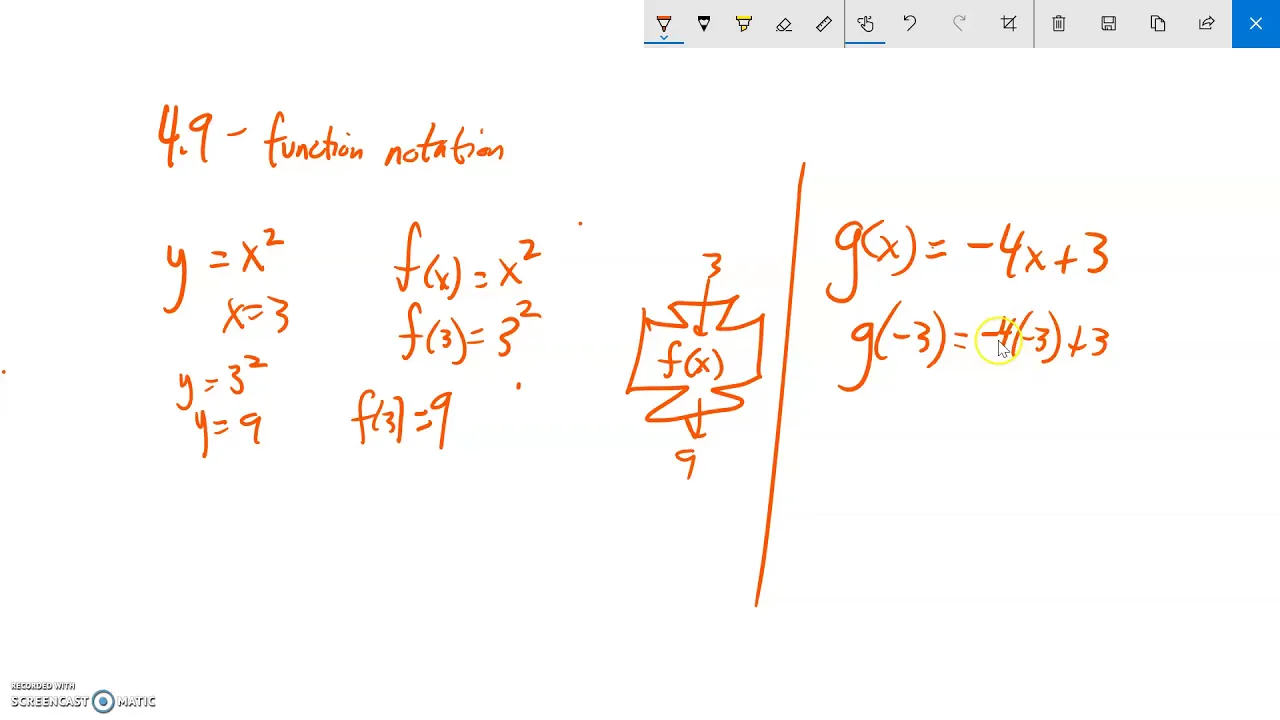 4.9 - function notation
y = x²
x = 3
y = 3²
y = 9
f(x) = x²
f(3) = 3²
f(3) = 9
3
f(x)
9
g(x) = -4x + 3
g(-3) = -4(-3) + 3
RECORDED WITH
SCREENCAST MATIC